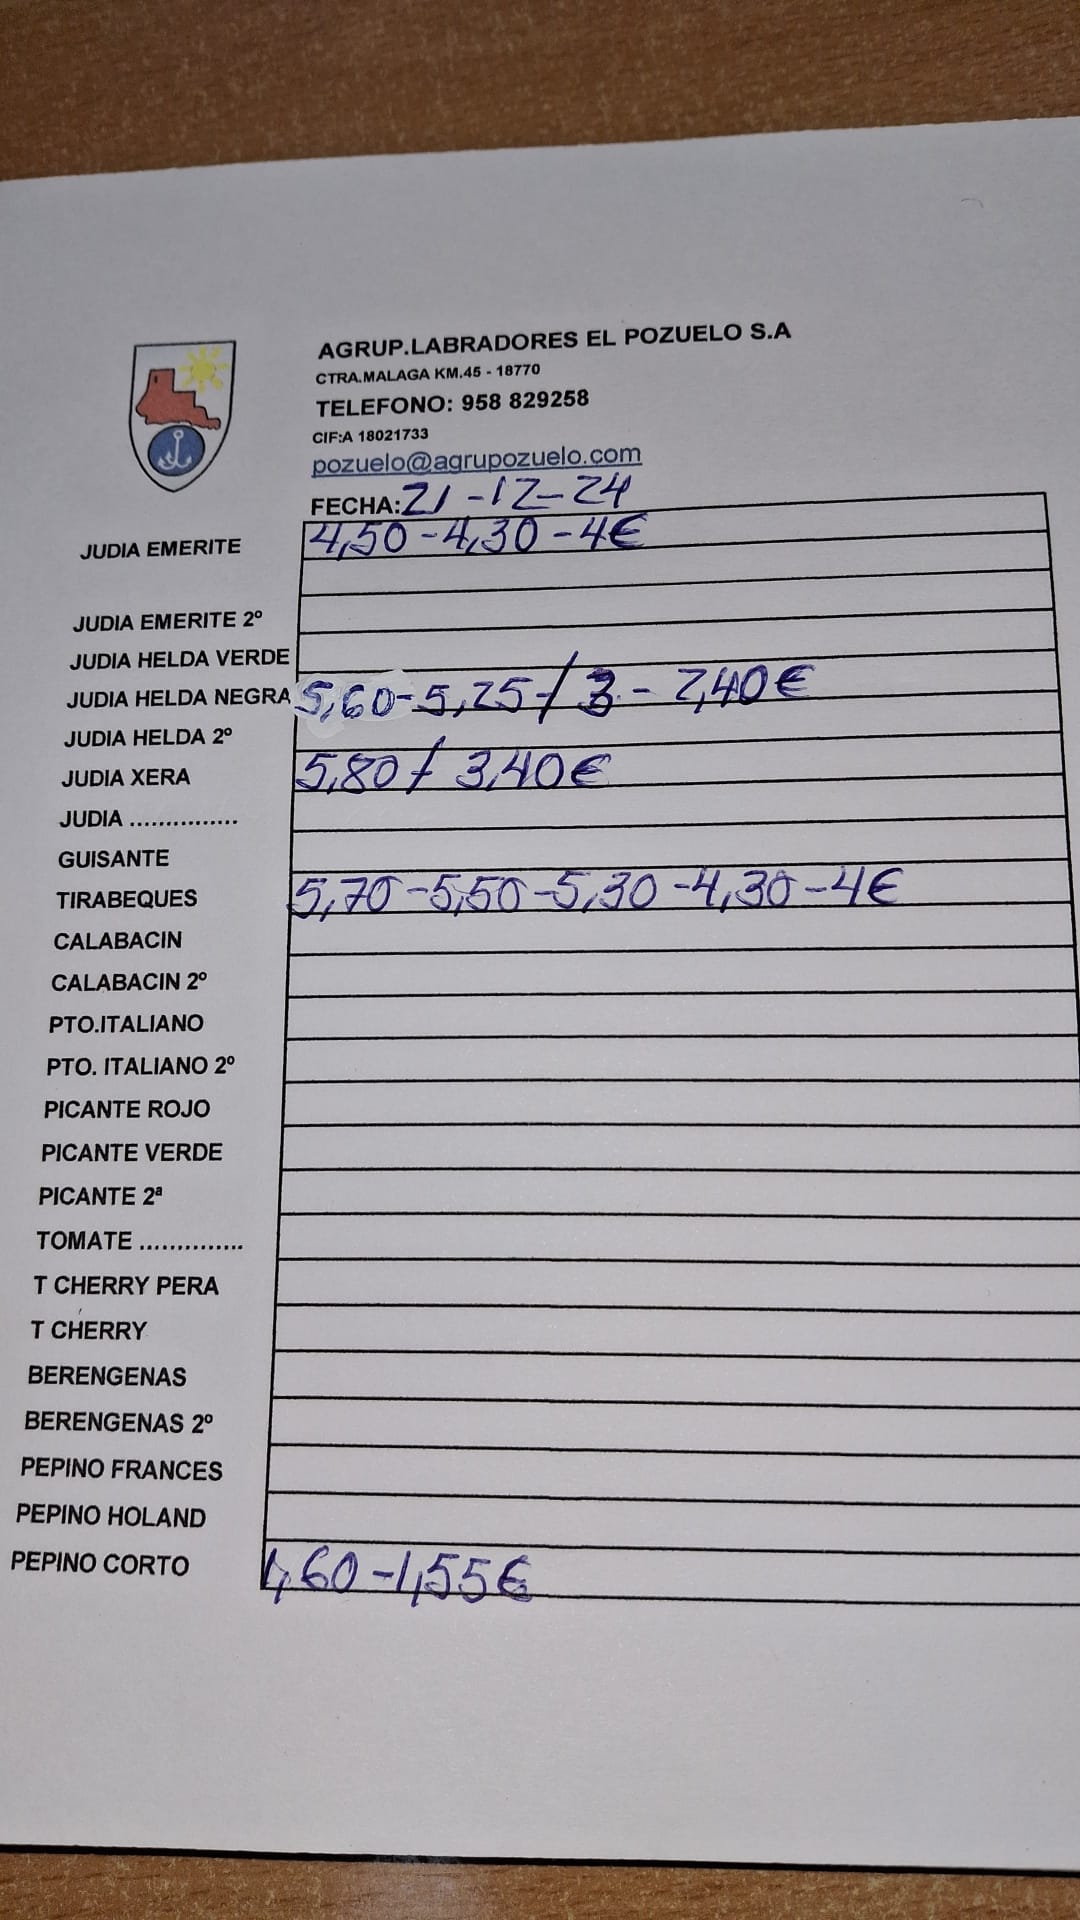 AGRUP.LABRADORES EL POZUELO S.A
CTRA.MALAGA KM.45 - 18770
TELEFONO: 958 829258
CIF:A 18021733
pozuelo@agrupozuelo.com
FECHA: 21-12-24
JUDIA EMERITE 4,50-4,30-4€
JUDIA EMERITE 2º
JUDIA HELDA VERDE
JUDIA HELDA NEGRA 5,60-5,25-/ 3 - 2,40€
JUDIA HELDA 2º
JUDIA XERA 5,80 / 3,40€
JUDIA ...............
GUISANTE
TIRABEQUES 5,70-5,50-5,30-4,30-4€
CALABACIN
CALABACIN 2º
PTO.ITALIANO
PTO. ITALIANO 2º
PICANTE ROJO
PICANTE VERDE
PICANTE 2ª
TOMATE ..............
T CHERRY PERA
T CHERRY
BERENGENAS
BERENGENAS 2º
PEPINO FRANCES
PEPINO HOLAND
PEPINO CORTO 1,60-1,55€